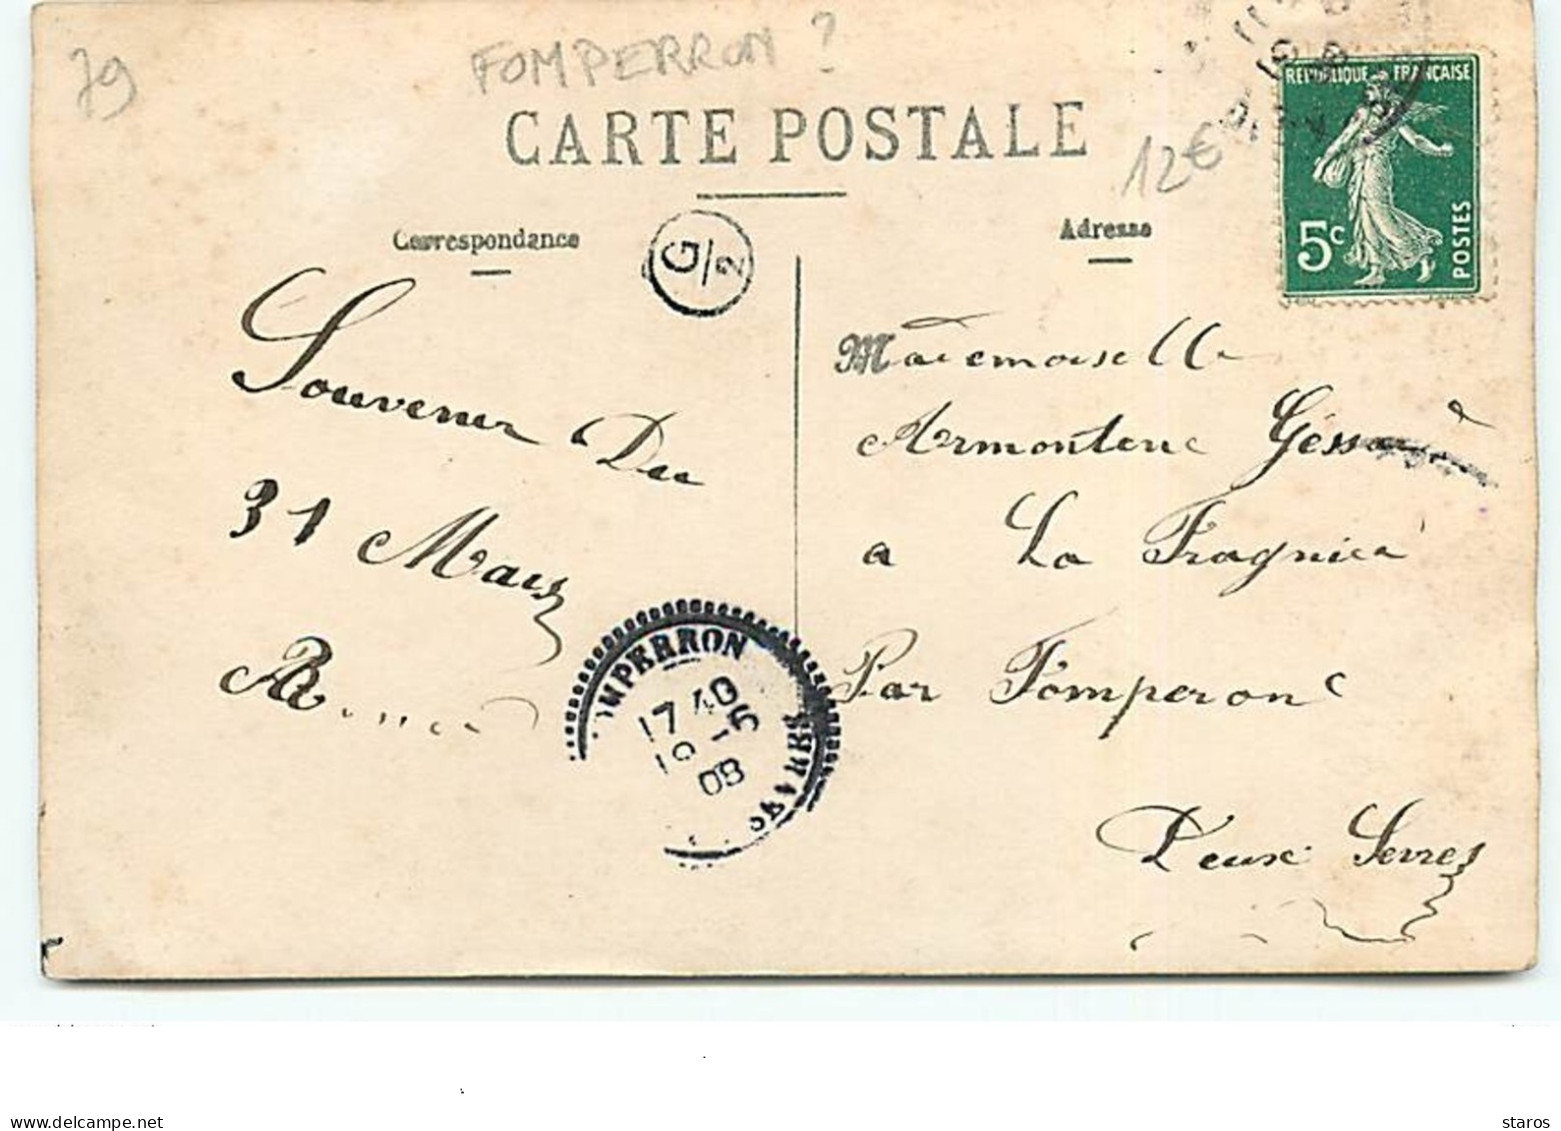 79
FOMPERRON ?
CARTE POSTALE
12€
REPUBLIQUE FRANÇAISE
5c
POSTES
Correspondance
G/2
Adresse
Souvenir Du
31 Mars
AR
Mademoiselle
a La Fragniea
Par Fomperon
Deux Sevres
OMPERRON
17 40
-5
08
SEVRES
staros